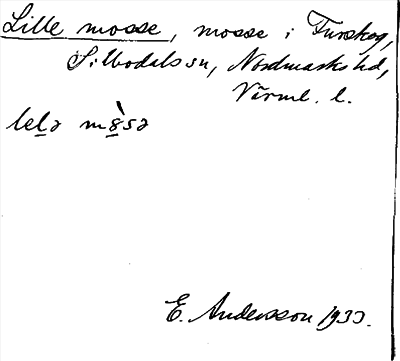 Lille mosse, mosse i Furskog,
Silbodals sn, Nordmarks hd,
Värml. l.
lelə mɵ̀sə
E. Andersson 1933.